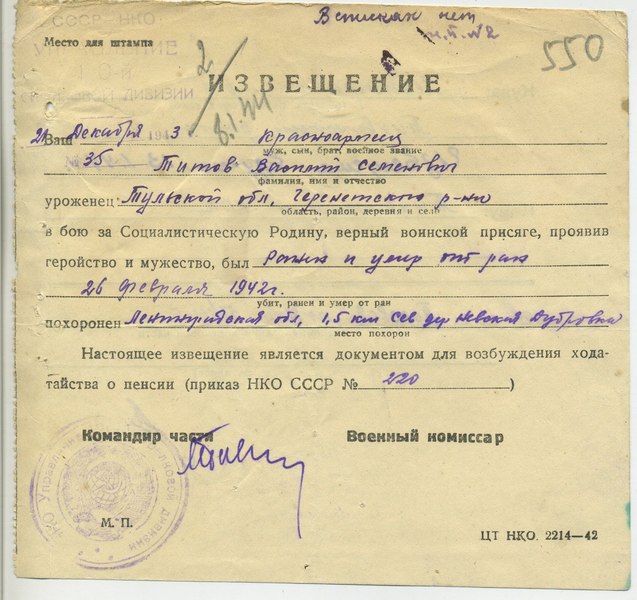 СССР НКО
УПРАВЛЕНИЕ
10-й
СТРЕЛКОВОЙ ДИВИЗИИ
Место для штампа
В списках нет
550
2
8.1.44
ИЗВЕЩЕНИЕ
21 Декабря 1943
Ваш красноармеец
муж, сын, брат, военное звание
35 Титов Василий Семенович
фамилия, имя и отчество
уроженец Тульской обл,
область, район, деревня и село
в бою за Социалистическую Родину, верный воинской присяге, проявив
геройство и мужество, был Ранен и умер от ран
26 февраля 1942г.
убит, ранен и умер от ран
похоронен Ленинградская обл, 1,5 км сев дер Невская Дубровка
место похорон
Настоящее извещение является документом для возбуждения хода-
тайства о пенсии (приказ НКО СССР № 220)
Командир части Военный комиссар
М. П.
ЦТ НКО. 2214—42